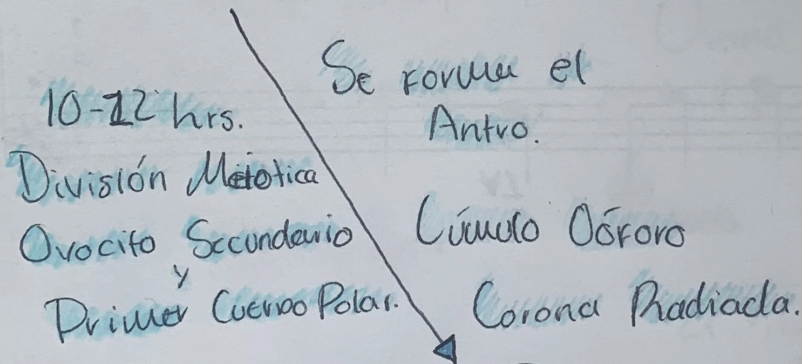 10-12 hrs.
División Meiotica
Ovocito Secundario
y
Primer Cuerpo Polar.
Se forma el
Antro.
Cúmulo Oóforo
Corona Radiada.